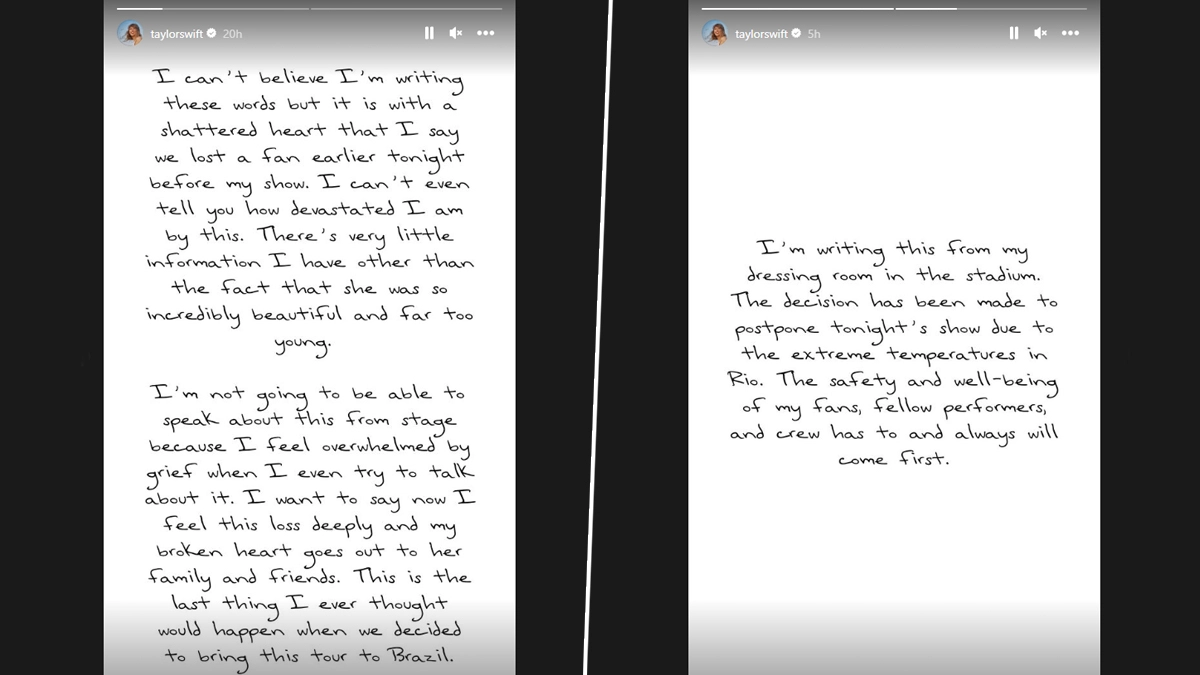 taylorswift 20h
I can't believe I'm writing
these words but it is with a
shattered heart that I say
we lost a fan earlier tonight
before my show. I can't even
tell you how devastated I am
by this. There's very little
information I have other than
the fact that she was so
incredibly beautiful and far too
young.
I'm not going to be able to
speak about this from stage
because I feel overwhelmed by
grief when I even try to talk
about it. I want to say now I
feel this loss deeply and my
broken heart goes out to her
family and friends. This is the
last thing I ever thought
would happen when we decided
to bring this tour to Brazil.
taylorswift 5h
I'm writing this from my
dressing room in the stadium.
The decision has been made to
postpone tonight's show due to
the extreme temperatures in
Rio. The safety and well-being
of my fans, fellow performers,
and crew has to and always will
come first.